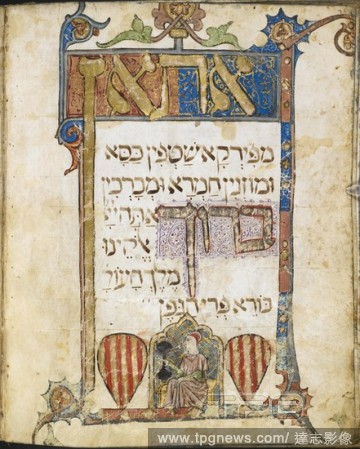 אתאן
מפירקא שטפין כסא
ומוזגין חמרא ומברכין
ברוך אתה ייי
אלקינו
מלך העול
בורא פרי הגפן
www.tpgnews.com/ 達志影像